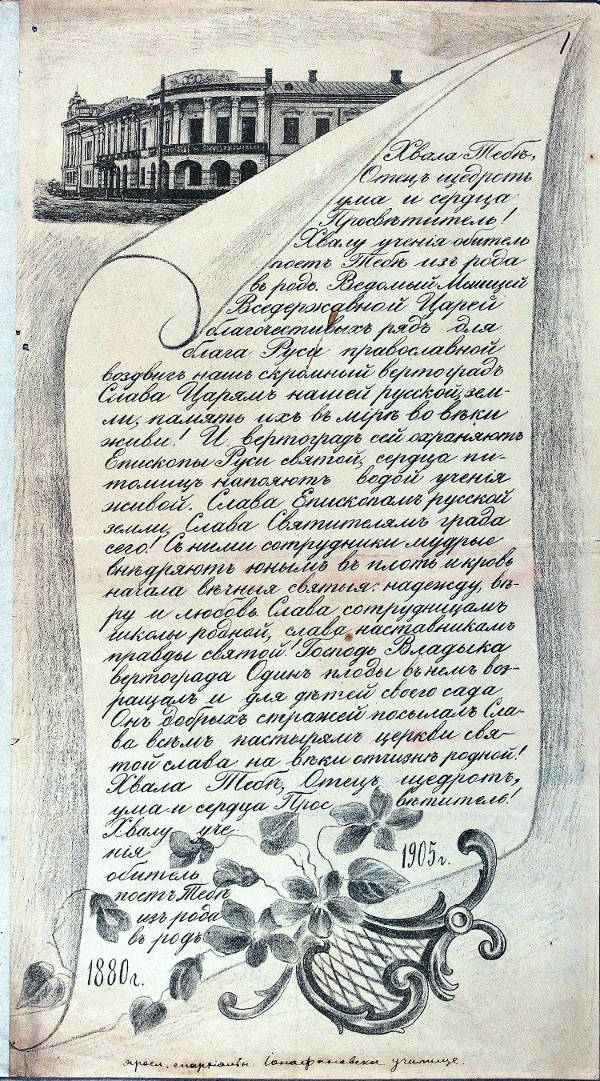 1
Хвала Тебѣ,
Отецъ щедротъ
ума и сердца
Просвѣтитель!
Хвалу ученія обитель
поетъ Тебѣ изъ рода
въ родъ. Ведомый Мышцей
Вседержавной Царей
благочестивыхъ рядъ для
блага Руси православной
воздвигъ нашъ скромный вертоградъ
Слава Царямъ нашей русской зем-
ли, память ихъ въ мірѣ во вѣки
живи! И вертоградъ сей охраняютъ
Епископы Руси святой, сердца пи-
томицъ напояютъ водой ученія
живой. Слава Епископамъ русской
земли, Слава Святителямъ града
сего! Съ ними сотрудники мудрые
внѣдряютъ юнымъ въ плоть и кровь
начала вѣчныя святыя: надежду, вѣ-
ру и любовь. Слава сотрудницамъ
школы родной, слава наставникамъ
правды святой! Господь Владыка
вертограда Одинъ плоды въ немъ воз-
ращалъ и для дѣтей своего сада
Онъ добрыхъ стражей посылалъ Сла-
ва всѣмъ пастырямъ церкви свя-
той слава на вѣки отчизнѣ родной!
Хвала Тебѣ, Отецъ щедротъ,
ума и сердца Прос вѣтитель!
Хвалу уче
нія
обитель
поетъ Тебѣ
изъ рода
въ родъ
1905 г.
1880 г.
яросл. епархіальн. Іонафановское училище.